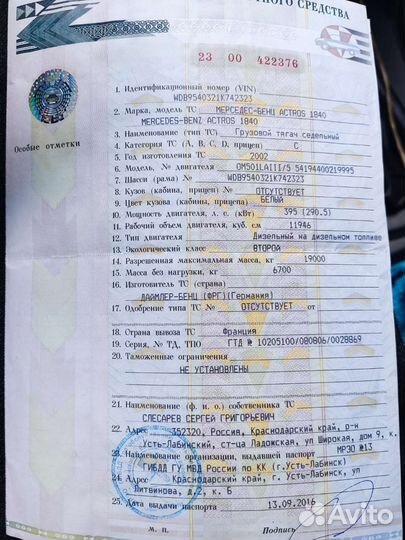 ТНОГО СРЕДСТВА
23 00 422376
Особые отметки
1. Идентификационный номер (VIN)
WDB9540321K742323
2. Марка, модель ТС МЕРСЕДЕС-БЕНЦ ACTROS 1840
MERCEDES-BENZ ACTROS 1840
3. Наименование (тип ТС) Грузовой тягач седельный
4. Категория ТС (A, B, C, D, прицеп) C
5. Год изготовления ТС 2002
6. Модель, № двигателя OM501LAIII/5 54194400219995
7. Шасси (рама) № WDB9540321K742323
8. Кузов (кабина, прицеп) № ОТСУТСТВУЕТ
9. Цвет кузова (кабины, прицепа) БЕЛЫЙ
10. Мощность двигателя, л. с. (кВт) 395 (290.5)
11. Рабочий объем двигателя, куб. см 11946
12. Тип двигателя Дизельный на дизельном топливе
13. Экологический класс ВТОРОЙ
14. Разрешенная максимальная масса, кг 19000
15. Масса без нагрузки, кг 6700
16. Изготовитель ТС (страна)
ДАЙМЛЕР-БЕНЦ (ФРГ)(Германия)
17. Одобрение типа ТС № ОТСУТСТВУЕТ от
18. Страна вывоза ТС Франция
19. Серия, № ТД, ТПО ГТД № 10205100/080806/0028869
20. Таможенные ограничения
НЕ УСТАНОВЛЕНЫ
21. Наименование (ф. и. о.) собственника ТС
СЛЕСАРЕВ СЕРГЕЙ ГРИГОРЬЕВИЧ
22. Адрес 352320, Россия, Краснодарский край, р-н
Усть-Лабинский, ст-ца Ладожская, ул Широкая, дом 9, к.
23. Наименование организации, выдавшей паспорт МРЭО №13
ГИБДД ГУ МВД России по КК (г.Усть-Лабинск)
24. Адрес Краснодарский край, г. Усть-Лабинск, ул
Литвинова, д.2, к. Б
25. Дата выдачи паспорта 13.09.2016
М. п. Подпись
Avito